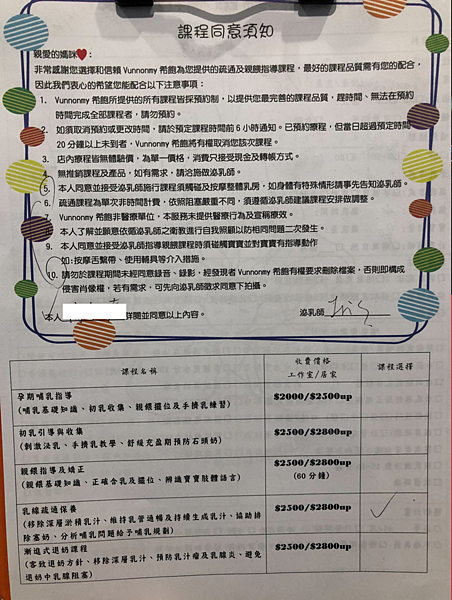 課程同意須知
親愛的媽咪♥：
非常感謝您選擇和信賴 Vunnonmy 希飽為您提供的疏通及親餵指導課程，最好的課程品質需有您的配合，
因此我們衷心的希望您能配合以下注意事項：
1. Vunnonmy 希飽所提供的所有課程皆採預約制，以提供您最完善的課程品質，趕時間、無法在預約
時間完成全部課程者，請勿預約。
2. 如須取消預約或更改時間，請於預定課程時間前 6 小時通知。已預約課程，但當日超過預定時間
20 分鐘以上未到者，Vunnonmy 希飽將有權取消您該次課程。
3. 店內療程皆無體驗價，為單一價格，消費只接受現金及轉帳方式。
4. 無推銷課程及產品，如有需求，請洽施做泌乳師。
5. 本人同意並接受泌乳師施行課程須觸碰及按摩整體乳房，如身體有特殊情形請事先告知泌乳師。
6. 疏通課程為單次非時間計費，依照阻塞嚴重不同，須遵循泌乳師建議課程安排做調整。
7. Vunnonmy 希飽非醫療單位，本服務未提供醫療行為及宣稱療效。
8. 本人了解並願意依循泌乳師之衛教進行自我照顧以防相同問題二次發生。
9. 本人同意並接受泌乳師指導親餵課程時須碰觸寶寶並對寶寶有指導動作
如:按摩舌繫帶、使用輔具等介入措施。
10. 請勿於課程期間未經同意錄音、錄影，經發現者 Vunnonmy 希飽有權要求刪除檔案，否則即構成
侵害肖像權，若有需求，可先向泌乳師徵求同意下拍攝。
本人 詳閱並同意以上內容。 泌乳師
課程名稱 收費價格 課程選擇
工作室/居家
孕期哺乳指導 $2000/$2500up
(哺乳基礎知識、初乳收集、親餵擺位及手擠乳練習)
初乳引導與收集 $2500/$2800up
(刺激泌乳、手擠乳教學、舒緩充盈期預防石頭奶)
親餵指導及矯正 $2500/$2800up
(親餵基礎知識、正確含乳及擺位、辨識寶寶肢體語言) (60 分鐘)
乳線疏通保養 $2500/$2800up ✓
(移除深層淤積乳汁、維持乳管通暢及持續生成乳汁、協助排
除塞奶、分析哺乳問題給予哺乳規劃)
漸進式退奶課程 $2500/$2800up
(客致退奶方針、移除深層乳汁、預防乳汁瘤及乳腺炎、避免
退奶中乳腺阻塞)